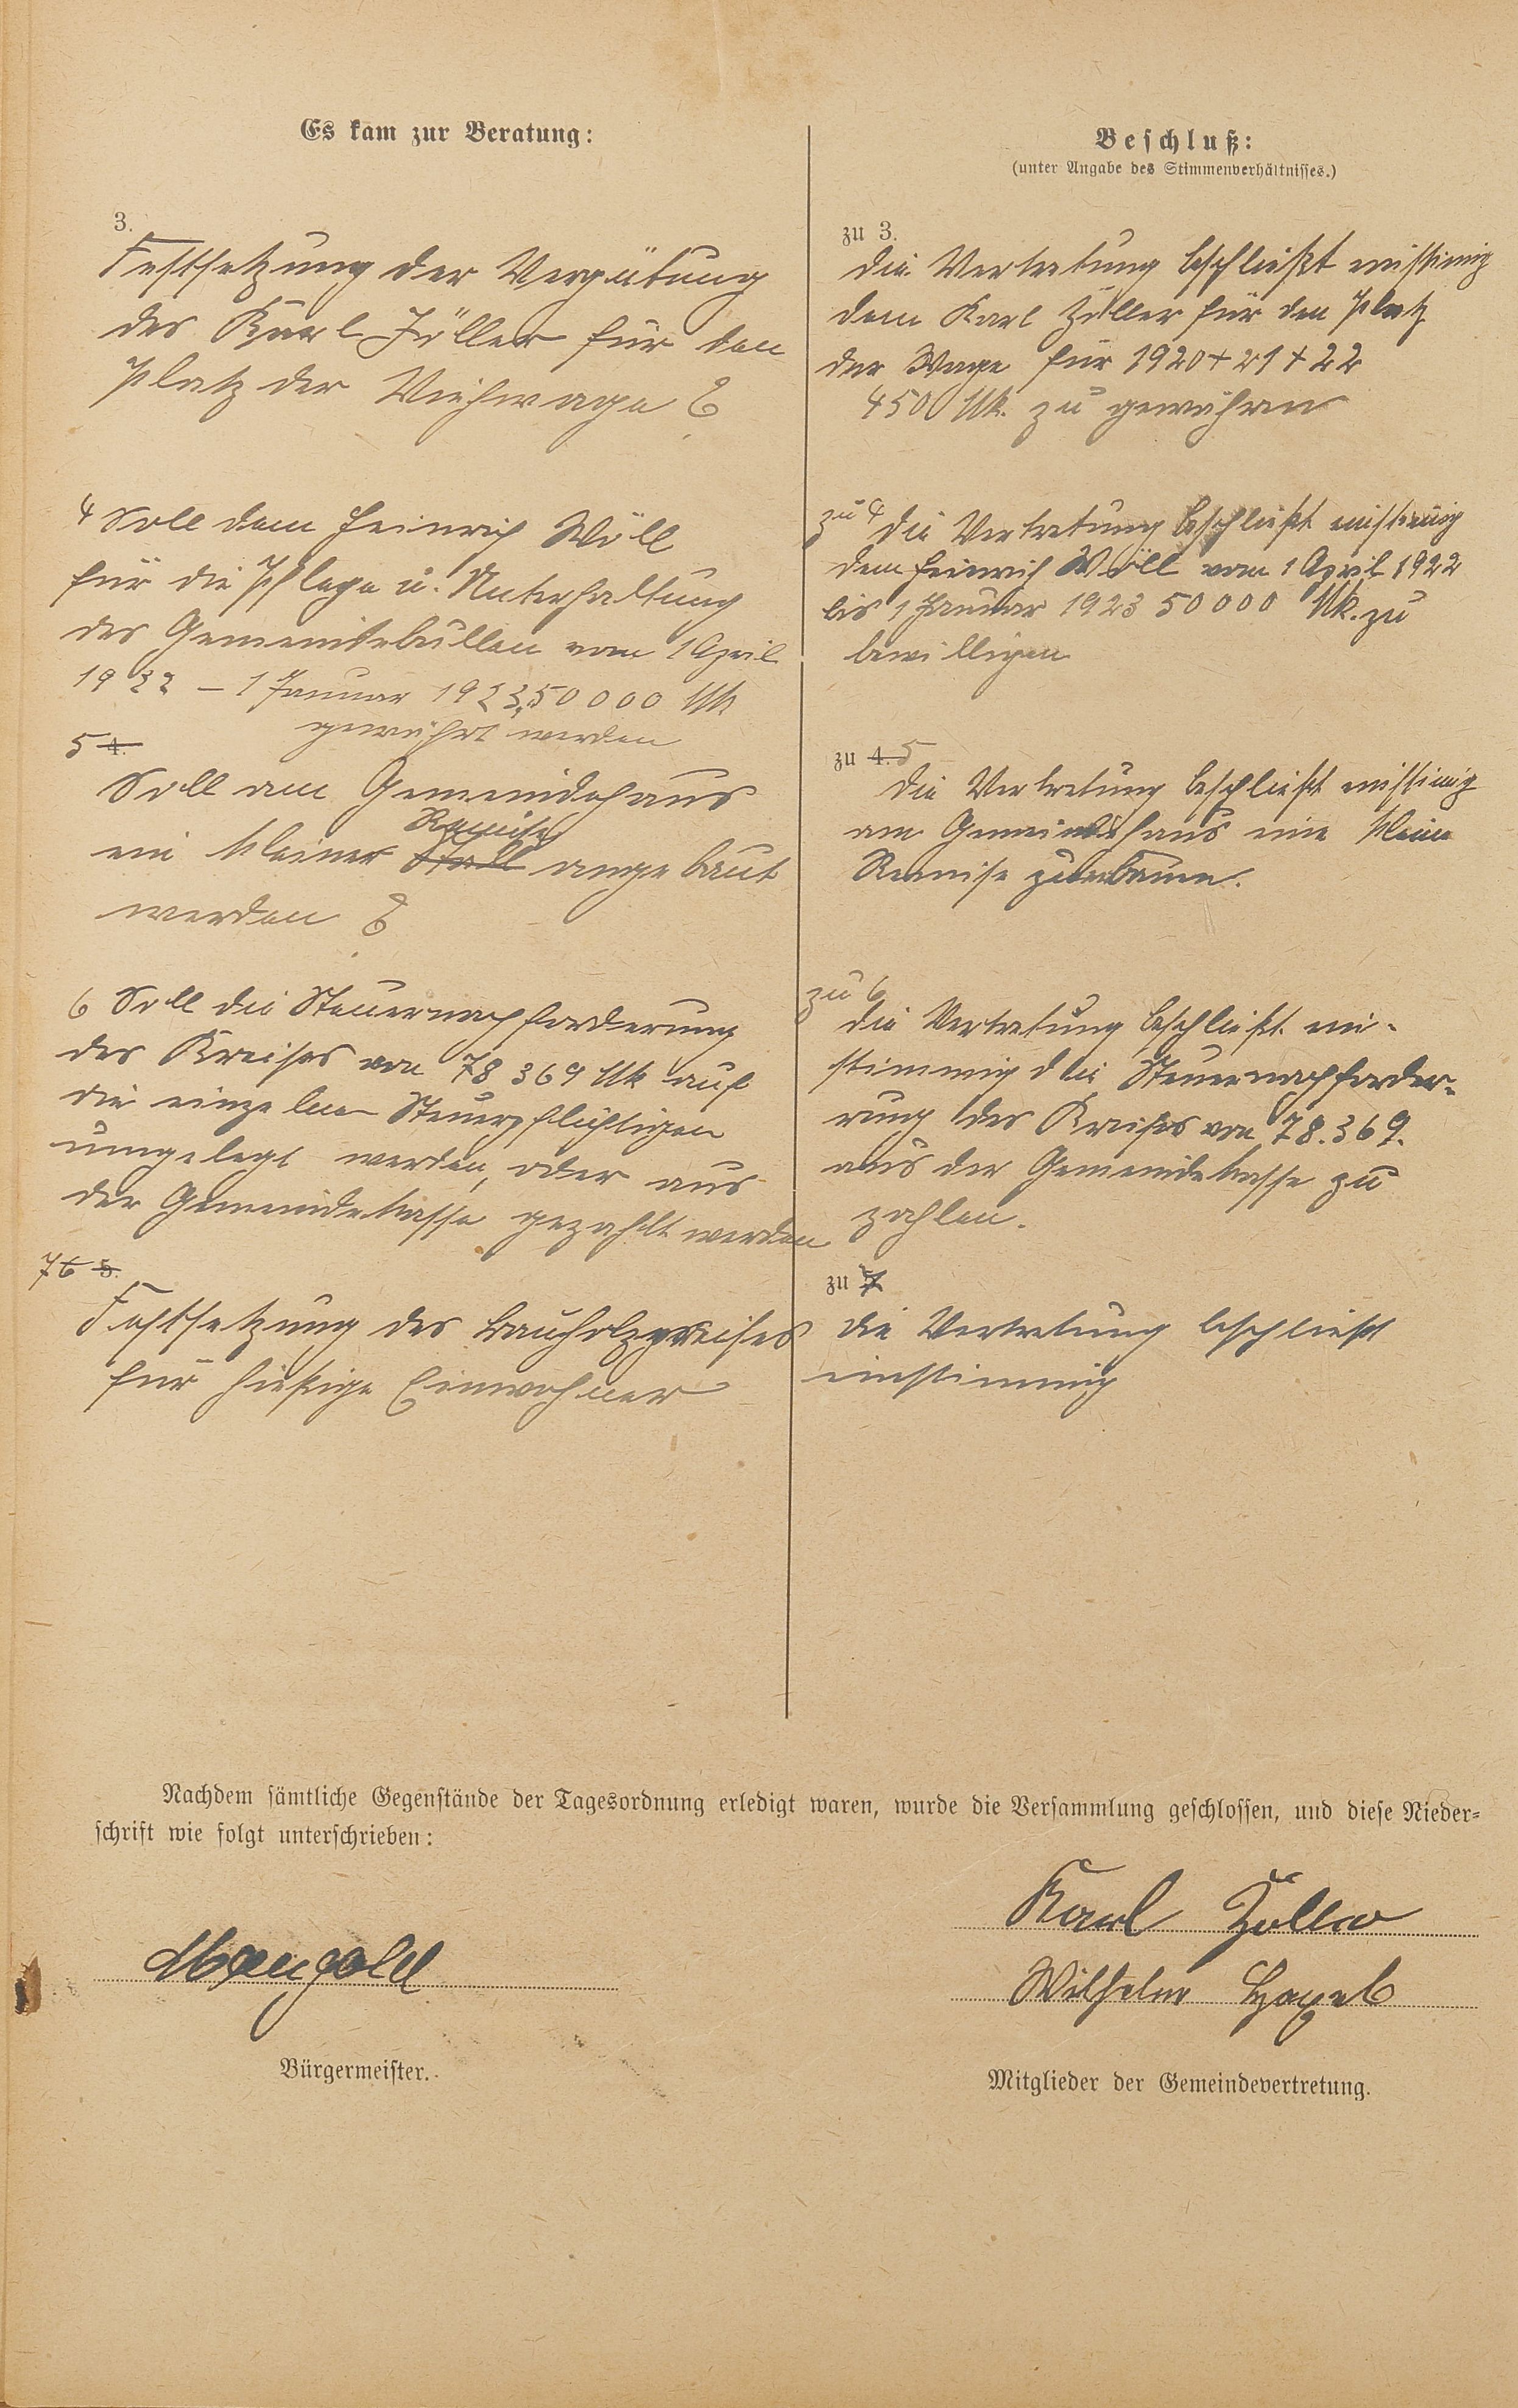 Es kam zur Beratung:
3.
Festsetzung der Vergütung
des Karl Zöller für den
Platz der Viehwage ?
4 Soll dem Heinrich Wöll
für die Pflege u. Unterhaltung
des Gemeindebullen vom 1 April
1922 – 1 Januar 1923, 50000 Mk
gewährt werden
5 4.
Soll am Gemeindehaus
Remise
ein kleiner Stall angebaut
werden ?
6 Soll die Steuernachforderung
des Kreises von 78 369 Mk auf
die einzelnen Steuerpflichtigen
umgelegt werden, oder aus
der Gemeindekasse gezahlt werden
7 6 5.
Festsetzung des Bauholzpreises
für hiesige Einwohner
Beschluß:
(unter Angabe des Stimmenverhältnisses.)
zu 3.
Die Vertretung beschließt einstimig
dem Karl Zöller für den Platz
der Wage für 1920+21+22
450 Mk. zu gewähren
zu 4 Die Vertretung beschließt einstimig
dem Heinrich Wöll vom 1 April 1922
bis 1 Januar 1923 50000 Mk. zu
bewilligen
zu 4. 5
Die Vertretung beschließt einstimig
am Gemeindehaus eine kleine
Remise zu erbauen.
zu 6
Die Vertretung beschließt ein-
stimmig die Steuernachforder-
rung des Kreises von 78.369.
aus der Gemeindekasse zu
zahlen.
zu 7
Die Vertretung beschließt
einstimmig
Nachdem sämtliche Gegenstände der Tagesordnung erledigt waren, wurde die Versammlung geschlossen, und diese Nieder-
schrift wie folgt unterschrieben:
Karl Zöller
Mangold
Wilhelm
Bürgermeister.
Mitglieder der Gemeindevertretung.